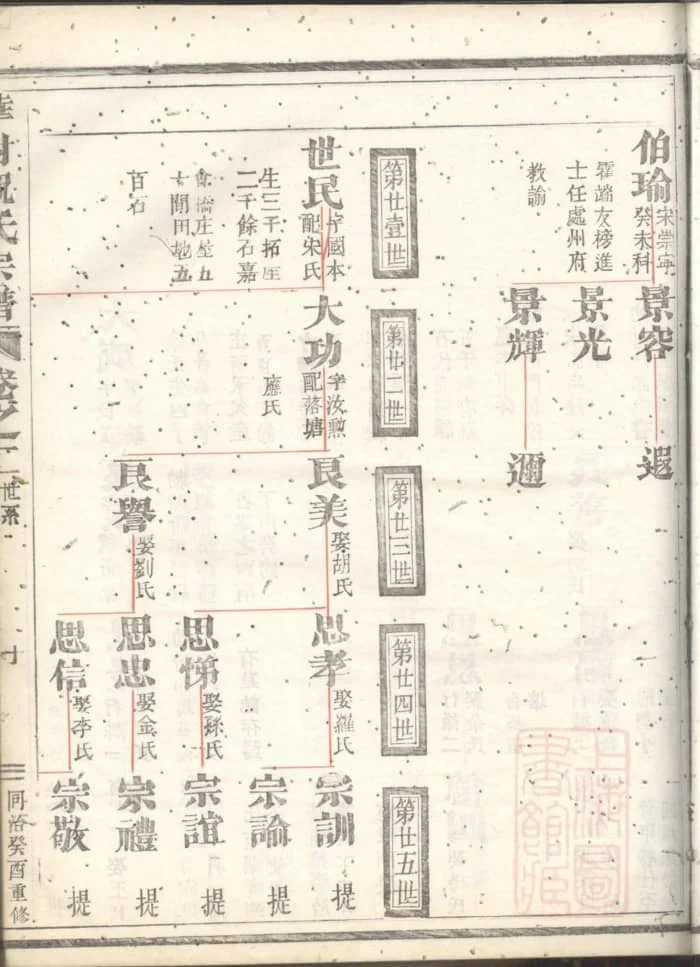 伯瑜
宋崇寧
癸未科
霍端友榜進
士任處州府
教諭
景容
景光
景輝
遐
邇
第廿壹世
第廿二世
第廿三世
第廿四世
第廿五世
世民
字國本
配宋氏
生三千拓庄
二千餘石嘉
橋庄
田地五
百石
大功
字汝勲
配落塘
應氏
良美
娶胡氏
良譽
娶劉氏
思孝
娶羅氏
思悌
娶孫氏
思忠
娶金氏
思信
娶李氏
宗訓
提
宗論
提
宗誼
提
宗禮
提
宗敬
提
祝氏宗譜
卷之一
世系
同治癸酉重修
上海圖書館藏